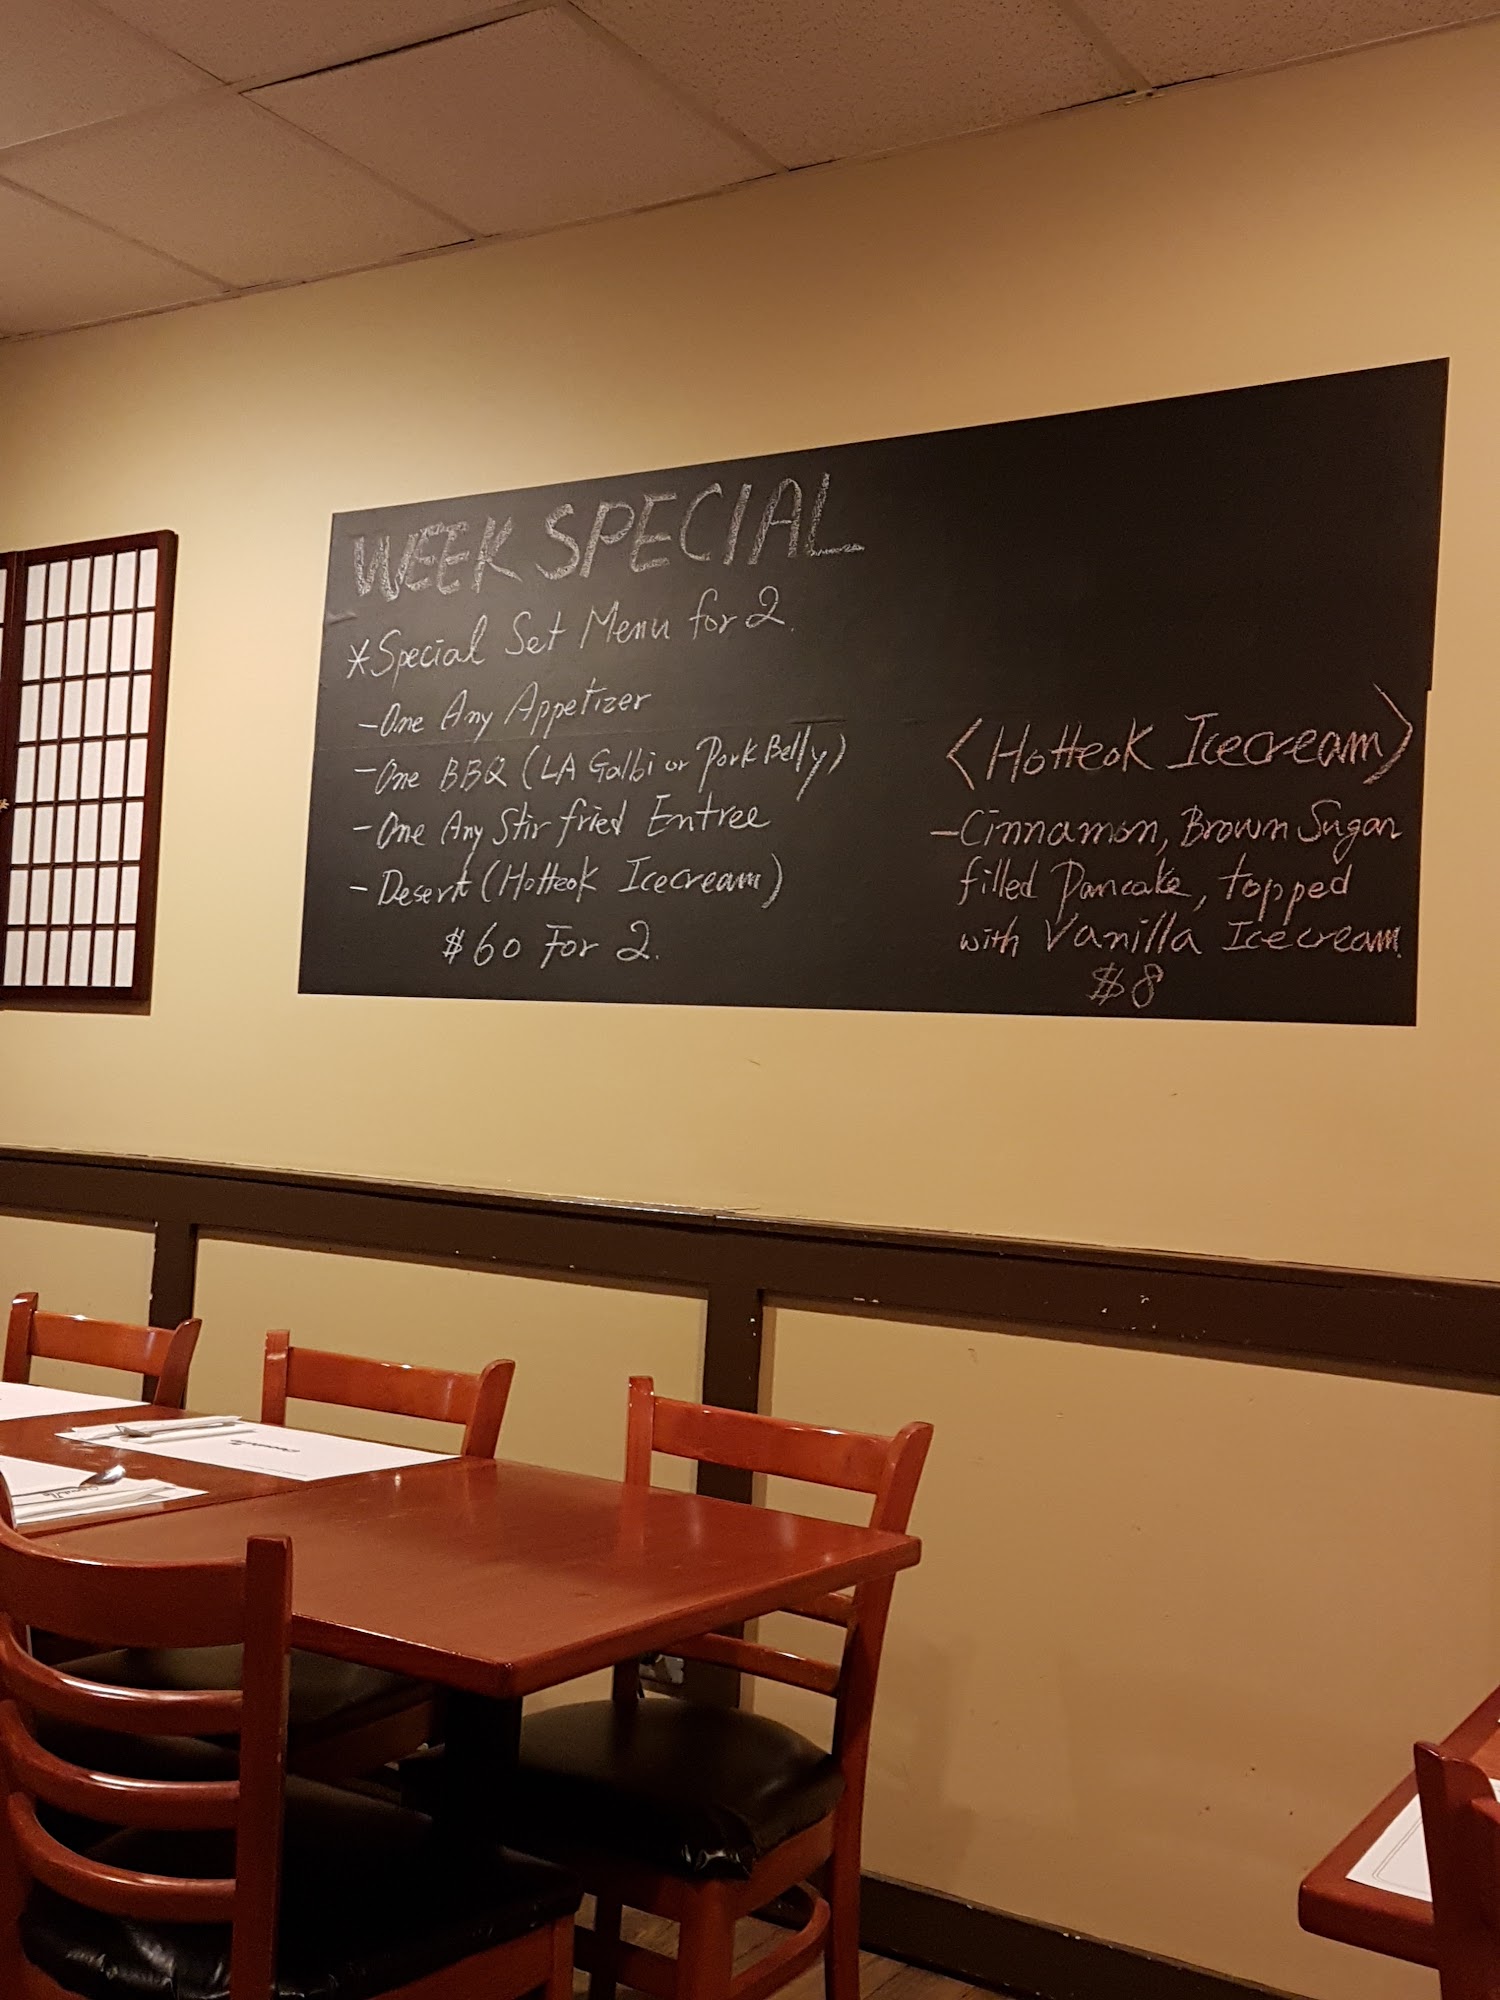 WEEK SPECIAL
*Special Set Menu for 2.
-One Any Appetizer
-One BBQ (LA Galbi or Pork Belly)
-One Any Stir fried Entree
-Desert (Hotteok Icecream)
$60 For 2.
<Hotteok Icecream>
-Cinnamon, Brown Sugar
filled Pancake, topped
with Vanilla Icecream.
$8